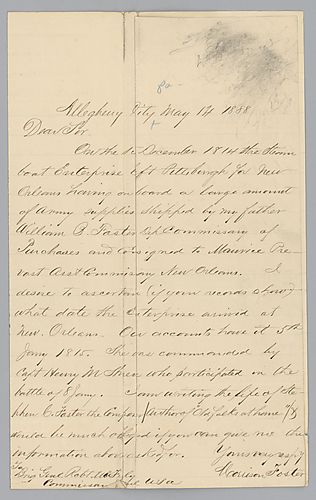 Allegheny City May 14 1888
Dear Sir.
On the 1st December 1814 the steam
boat Enterprise left Pittsburgh for New
Orleans having on board a large amount
of Army supplies shipped by my father
William B. Foster Dep Commissary of
Purchases and consigned to Maurice Pre-
vost Asst Commissary New Orleans. I
desire to ascertain (if your records show)
what date the Enterprise arrived at
New Orleans. Our accounts have it 5th
Jany 1815. She was commanded by
Capt Henry M Shreve who participated in the
battle of 8 Jany. I am writing the life of Ste-
phen C Foster the composer (Author of Old folks at home &c)
& would be much obliged if you can give me the
information above asked for. Yours very respy
To Morrison Foster
Brig Genl Robt
Commissary